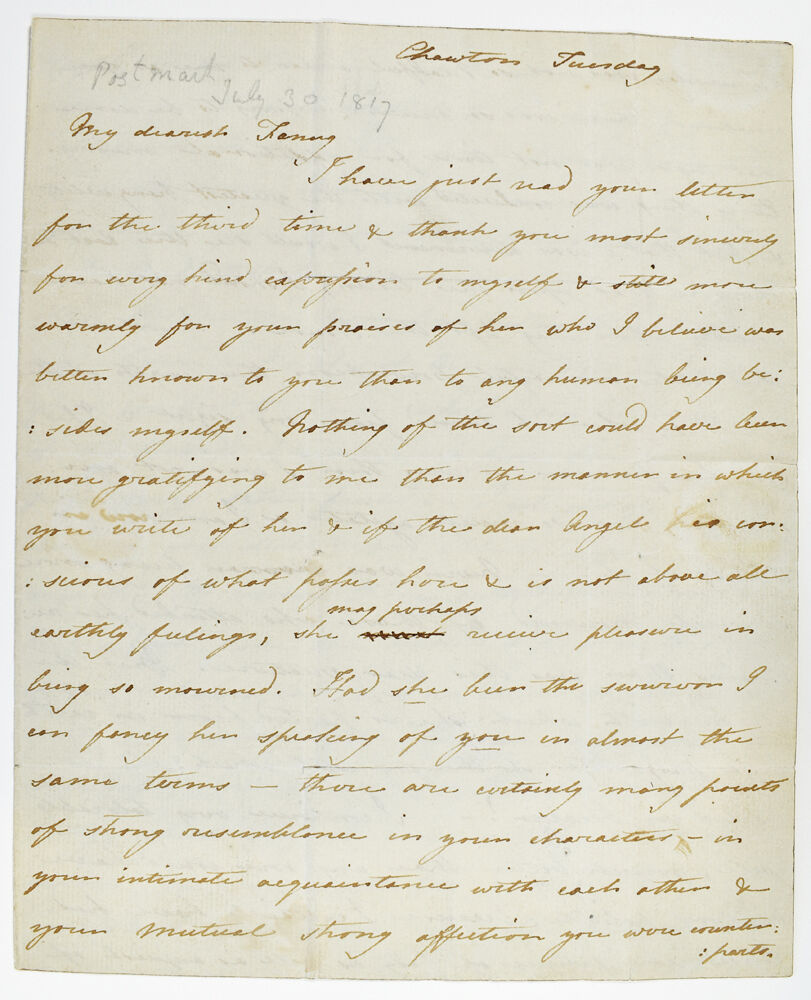 Chawton Tuesday
Postmark
July 30 1817
My dearest Fanny
I have just read your letter
for the third time & thank you most sincerely
for every kind expression to myself & still more
warmly for your praises of her who I believe was
better known to you than to any human being be:
:sides myself. Nothing of the sort could have been
more gratifying to me than the manner in which
you write of her & if the dear Angel is con:
:scious of what passes here & is not above all
may perhaps
earthly feelings, she receive pleasure in
being so mourned. Had she been the survivor I
can fancy her speaking of you in almost the
same terms — there are certainly many points
of strong resemblance in your characters — in
your intimate acquaintance with each other &
your mutual strong affection you were counter:
:parts.